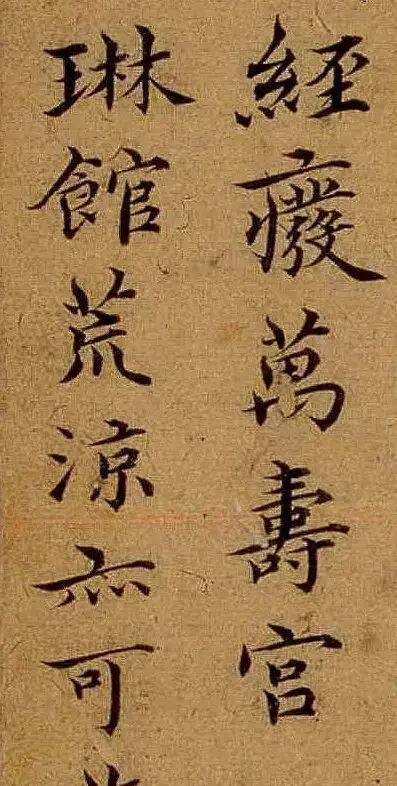 經癈萬壽宮
琳館荒涼亦可